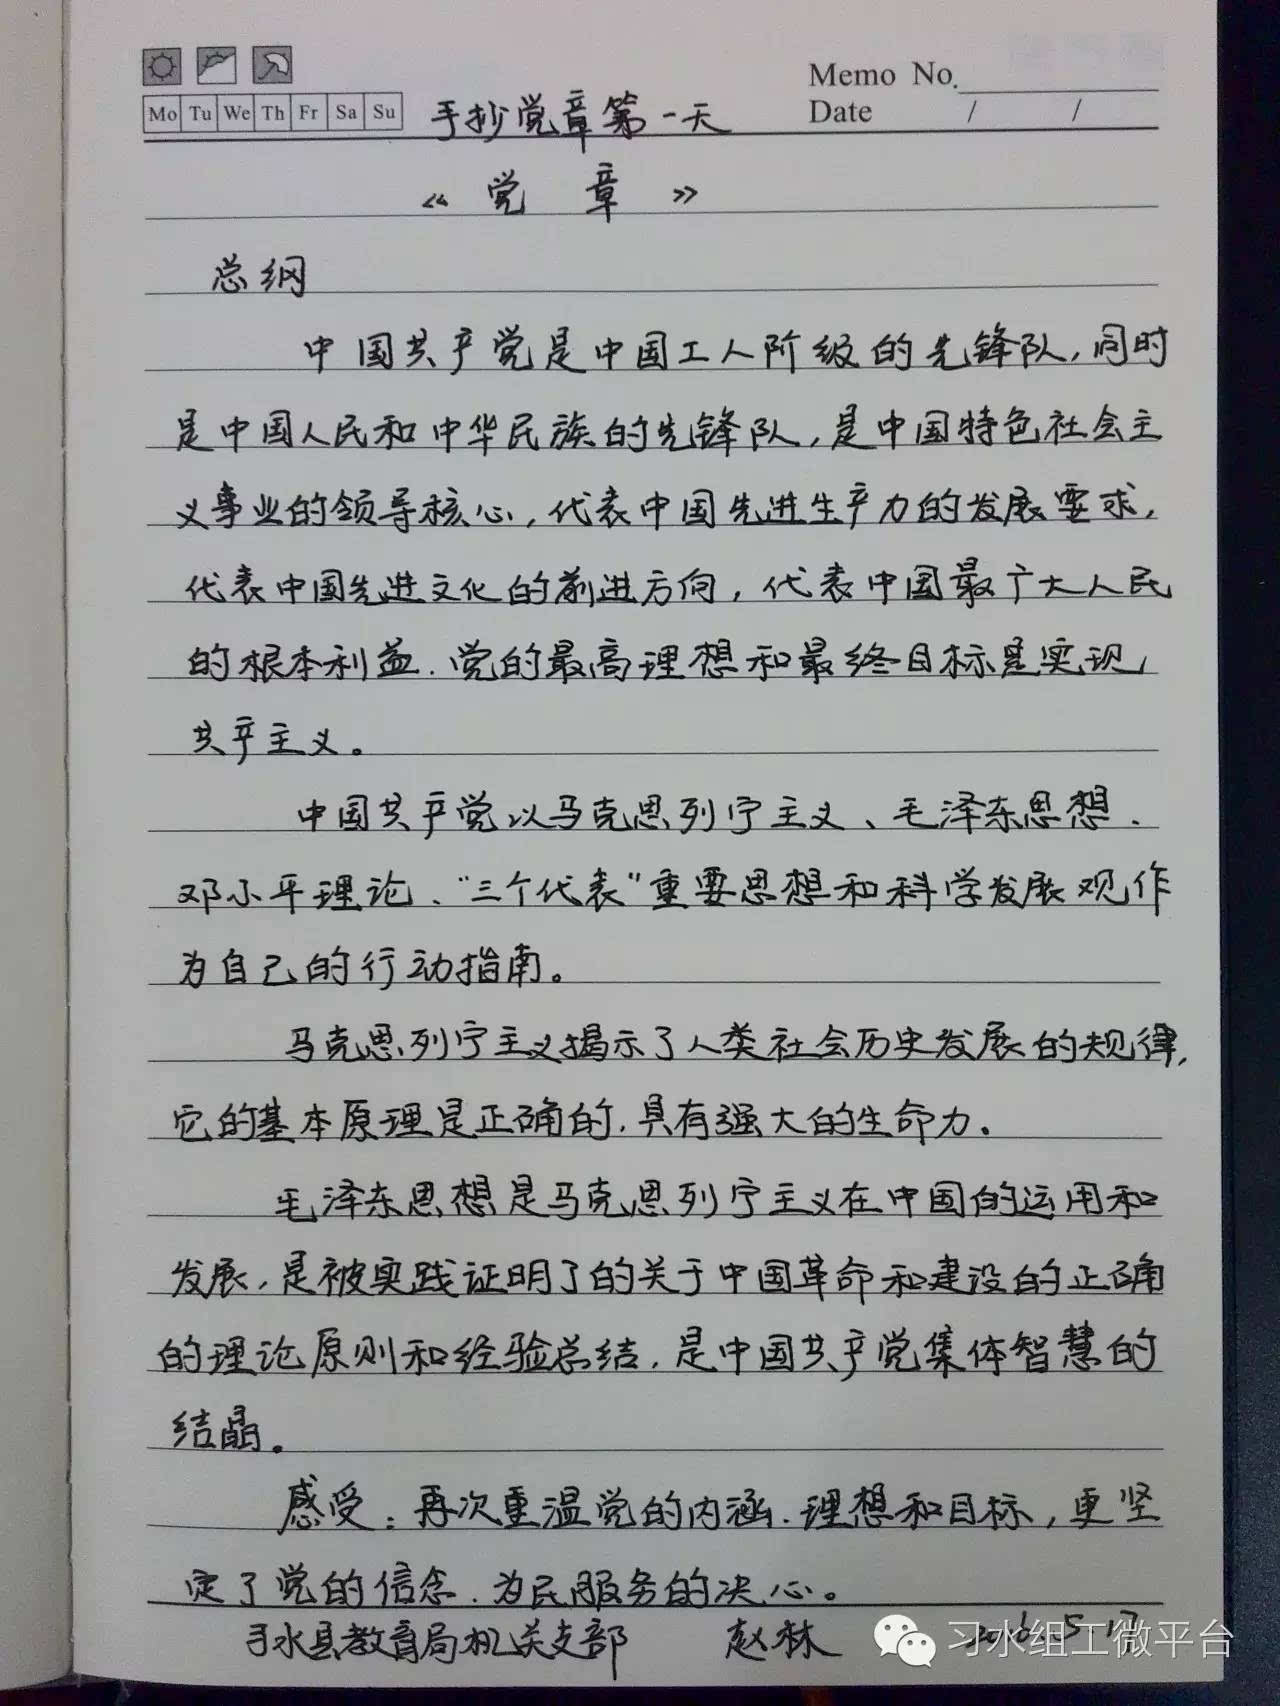 Memo No.
Mo Tu We Th Fr Sa Su
手抄党章第一天
Date / /
《党 章》
总纲
中国共产党是中国工人阶级的先锋队,同时
是中国人民和中华民族的先锋队,是中国特色社会主
义事业的领导核心,代表中国先进生产力的发展要求,
代表中国先进文化的前进方向,代表中国最广大人民
的根本利益.党的最高理想和最终目标是实现
共产主义。
中国共产党以马克思列宁主义、毛泽东思想.
邓小平理论、"三个代表"重要思想和科学发展观作
为自己的行动指南。
马克思列宁主义揭示了人类社会历史发展的规律,
它的基本原理是正确的,具有强大的生命力。
毛泽东思想是马克思列宁主义在中国的运用和
发展,是被实践证明了的关于中国革命和建设的正确
的理论原则和经验总结,是中国共产党集体智慧的
结晶。
感受:再次重温党的内涵.理想和目标,更坚
定了党的信念.为民服务的决心。
习水县教育局机关支部 赵林 2016.5.17
习水组工微平台